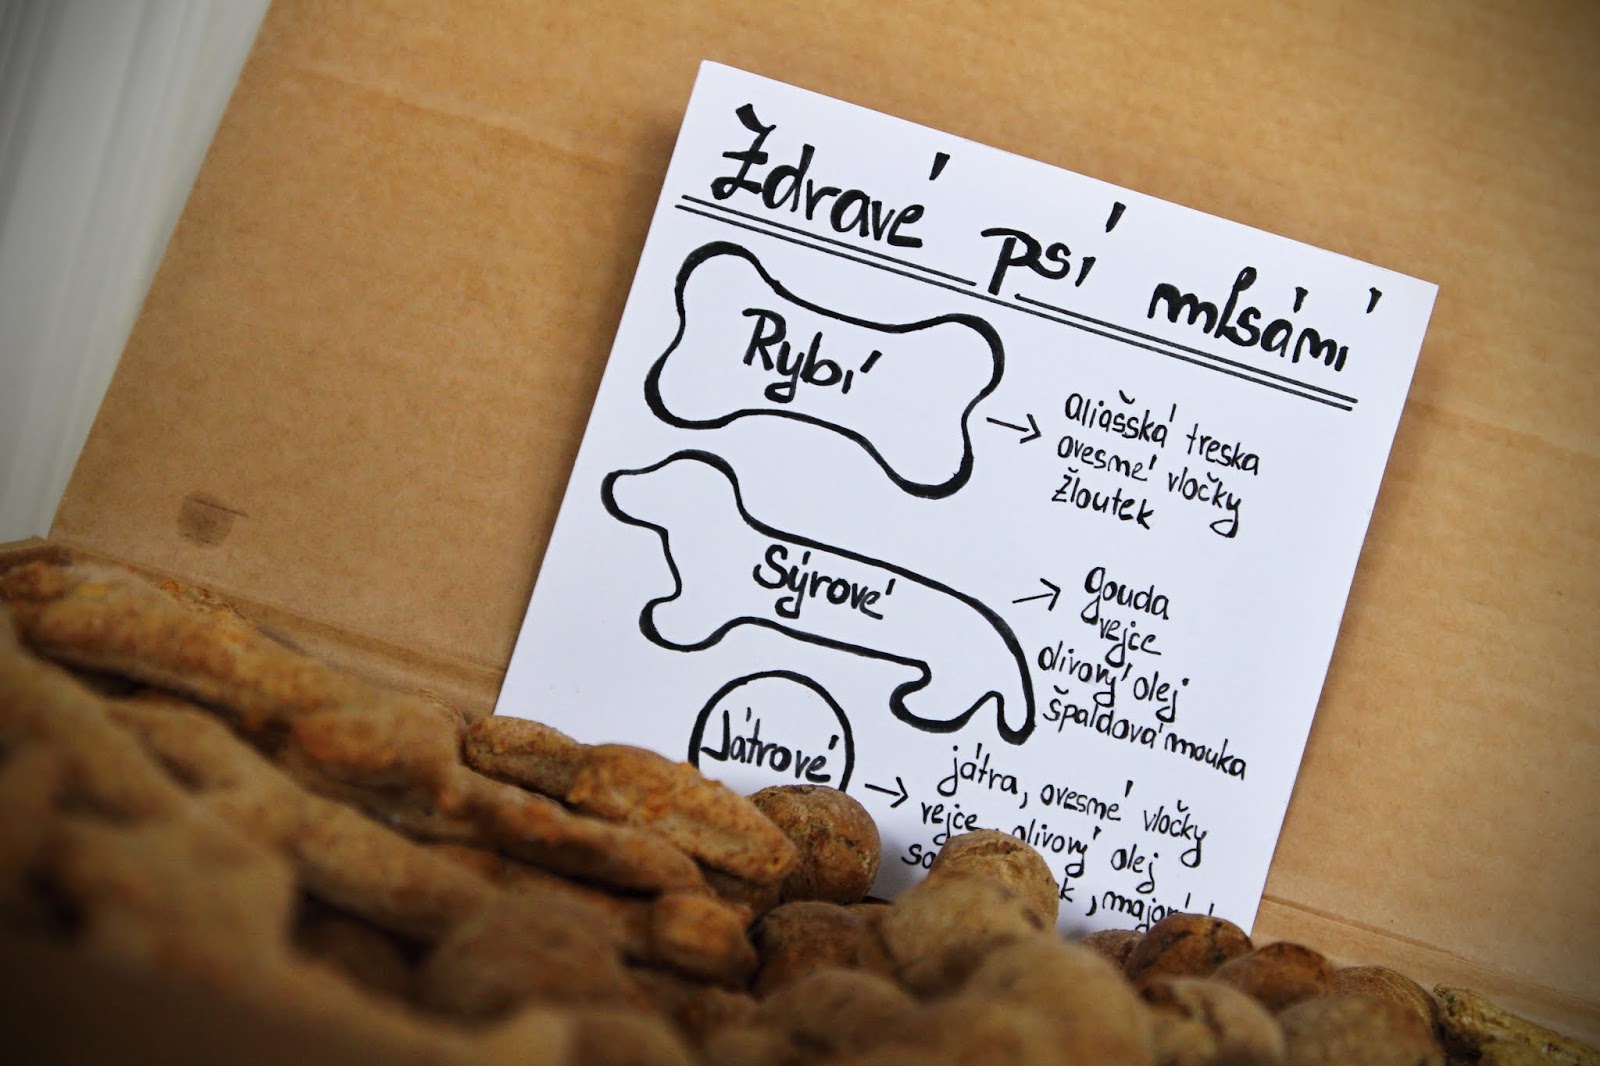 Zdravé psí mlsání
Rybí
aliašská treska
ovesné vločky
žloutek
Sýrové
gouda
vejce
olivový olej
špaldová mouka
Játrové
játra, ovesné vločky
vejce, olivový olej